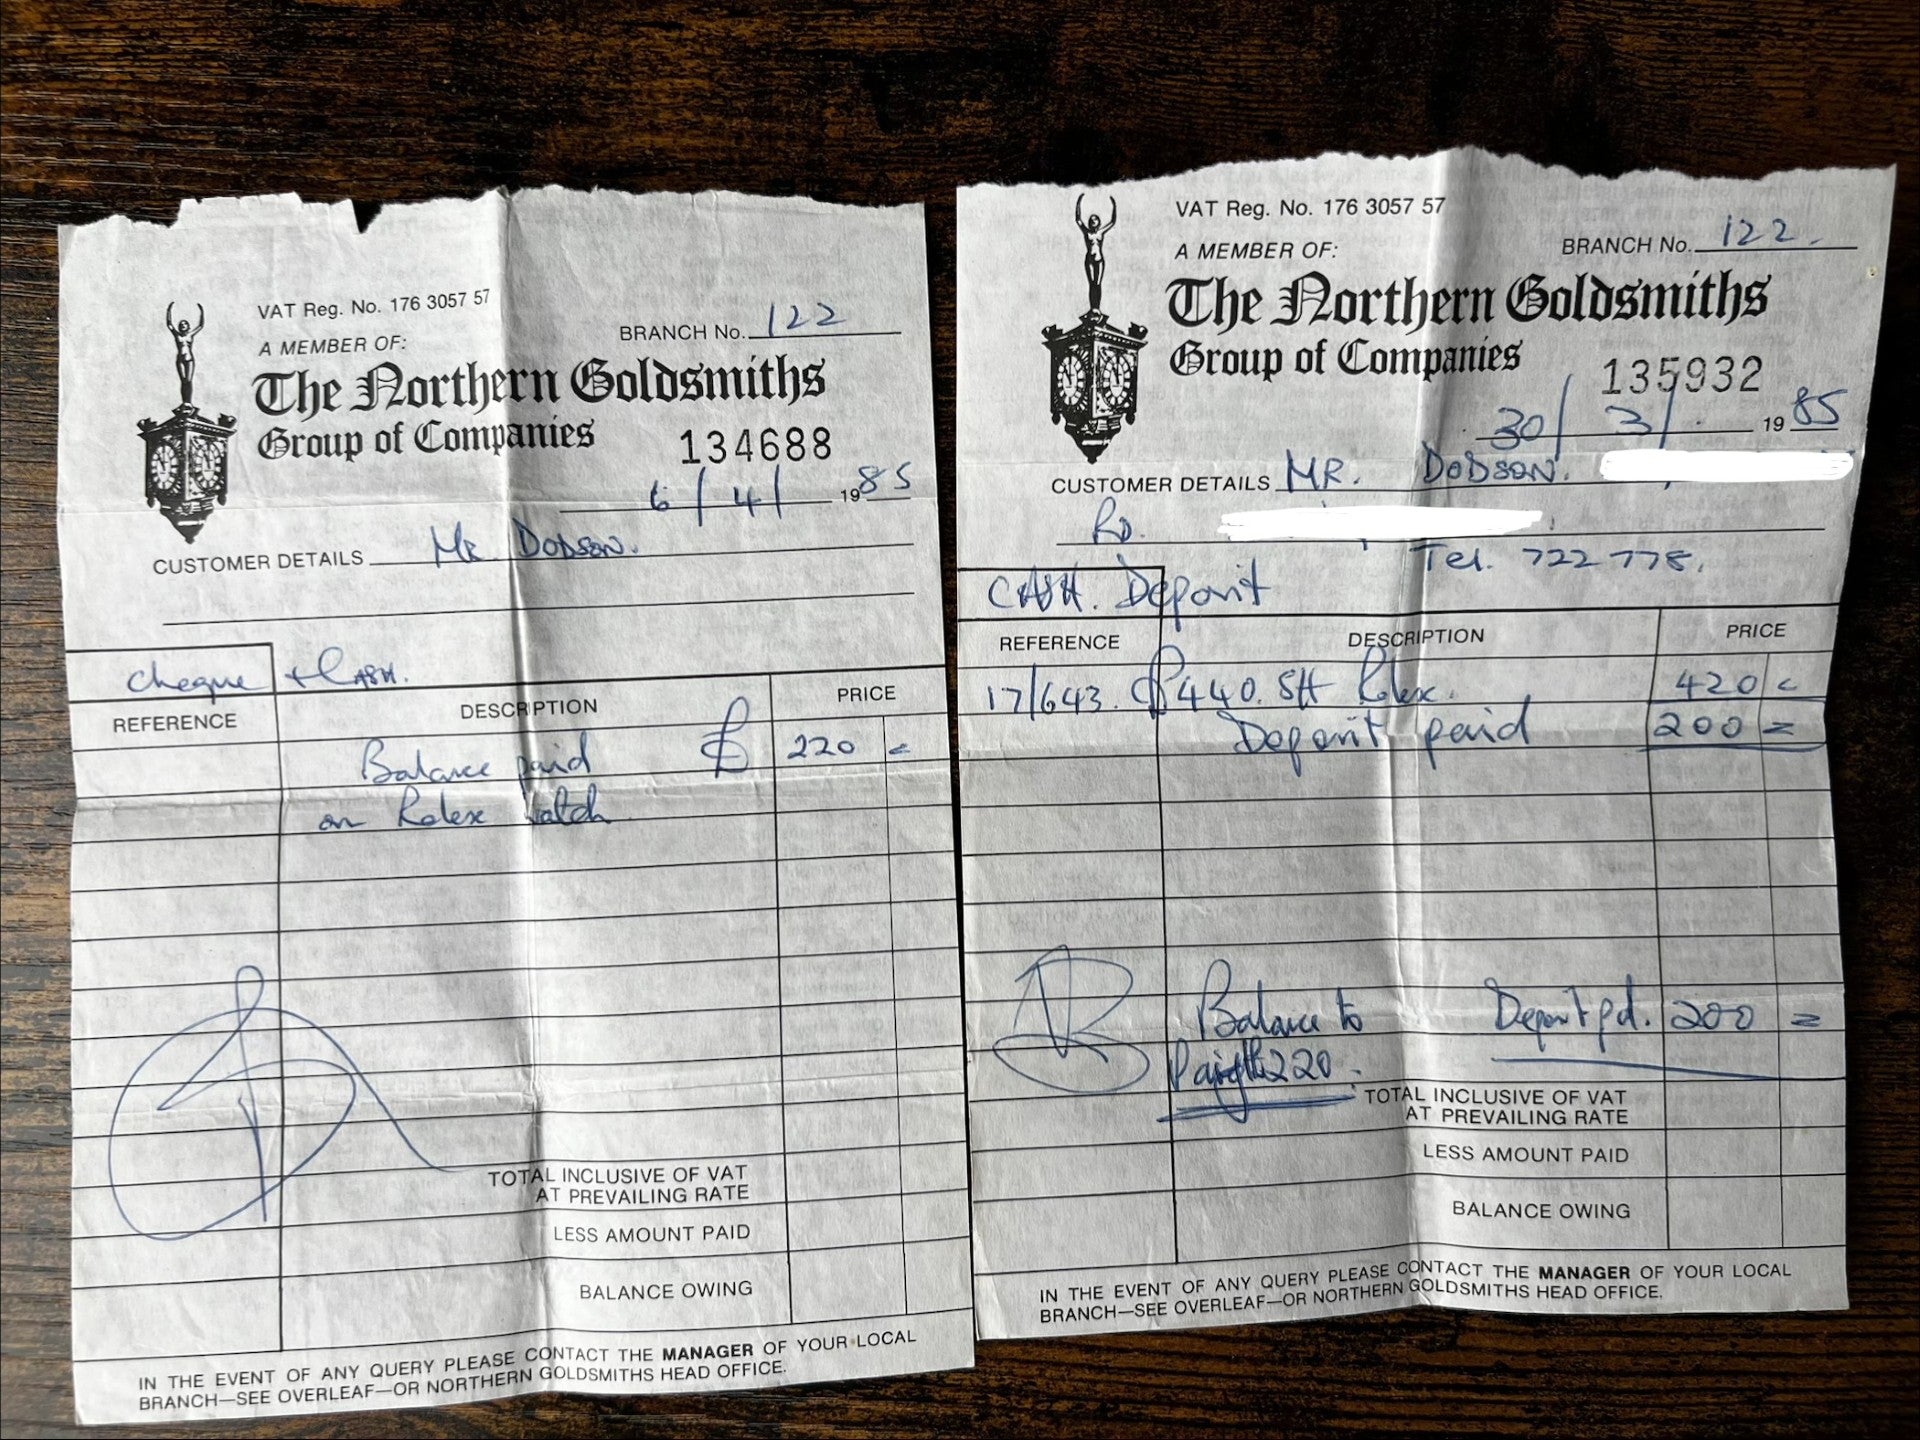 VAT Reg. No. 176 3057 57
BRANCH No. 122
A MEMBER OF:
The Northern Goldsmiths
Group of Companies
134688
6/4/ 1985
CUSTOMER DETAILS Mr Dodson.
Cheque + Cash.
REFERENCE DESCRIPTION PRICE
Balance paid £ 220 =
on Rolex watch
TOTAL INCLUSIVE OF VAT
AT PREVAILING RATE
LESS AMOUNT PAID
BALANCE OWING
IN THE EVENT OF ANY QUERY PLEASE CONTACT THE MANAGER OF YOUR LOCAL
BRANCH—SEE OVERLEAF—OR NORTHERN GOLDSMITHS HEAD OFFICE.
VAT Reg. No. 176 3057 57
BRANCH No. 122.
A MEMBER OF:
The Northern Goldsmiths
Group of Companies
135932
30/3/ 1985
CUSTOMER DETAILS MR. DODSON.
RD.
Tel. 722 778.
CASH. Deposit
REFERENCE DESCRIPTION PRICE
17/643. £440. SH Rolex. 420 =
Deposit paid 200 =
Balance to Deposit pd. 200 =
220.
TOTAL INCLUSIVE OF VAT
AT PREVAILING RATE
LESS AMOUNT PAID
BALANCE OWING
IN THE EVENT OF ANY QUERY PLEASE CONTACT THE MANAGER OF YOUR LOCAL
BRANCH—SEE OVERLEAF—OR NORTHERN GOLDSMITHS HEAD OFFICE.